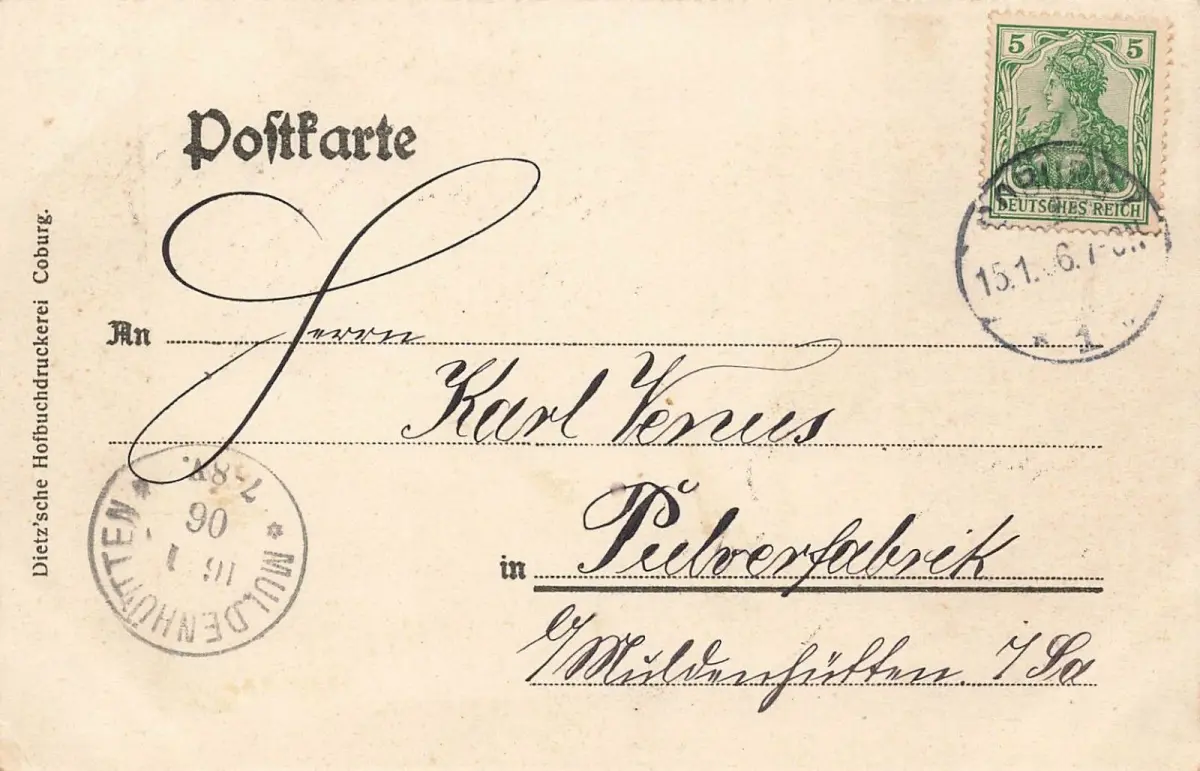 5 5
DEUTSCHES REICH
Poſtkarte
15.1. 6. 7-8N
* 1 *
An Herrn
Karl Venus
in Pulverfabrik
b/Muldenhütten. i/Sa
MULDENHÜTTEN
7-8V.
06
Dietz'sche Hofbuchdruckerei Coburg.